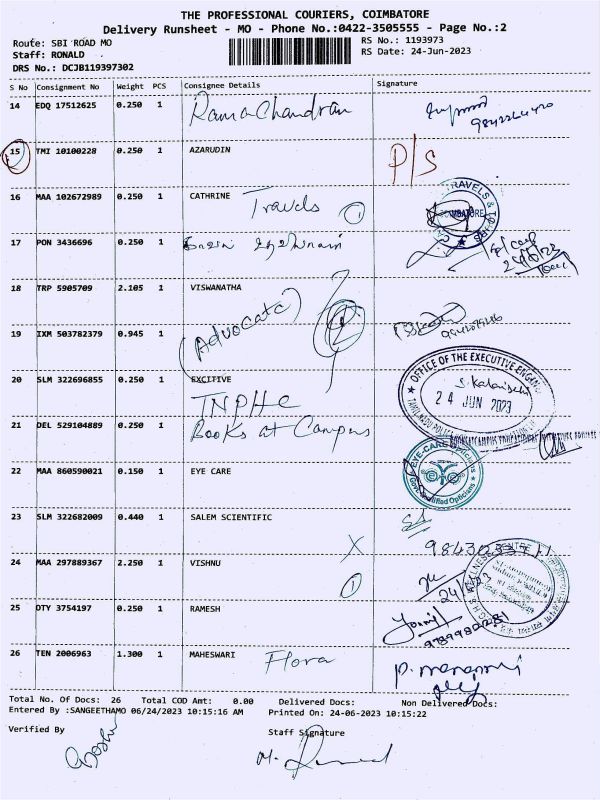 THE PROFESSIONAL COURIERS, COIMBATORE
Delivery Runsheet - MO - Phone No.:0422-3505555 - Page No.:2
Route: SBI ROAD MO
RS No.: 1193973
Staff: RONALD
RS Date: 24-Jun-2023
DRS No.: DCJB119397302
S No Consignment No Weight PCS Consignee Details Signature
14 EDQ 17512625 0.250 1 Ramachandran
15 TMI 10100228 0.250 1 AZARUDIN P/S
16 MAA 102672989 0.250 1 CATHRINE Travels 1
TRAVELS & TOURS
COIMBATORE
17 PON 3436696 0.250 1
18 TRP 5905709 2.105 1 VISWANATHA
19 IXM 503782379 0.945 1 (Advocate)
20 SLM 322696855 0.250 1 EXCITIVE
OFFICE OF THE EXECUTIVE ENGINEER
24 JUN 2023
TAMILNADU POLICE
TNPHC
21 DEL 529104889 0.250 1 Books at Campus
22 MAA 860590021 0.150 1 EYE CARE
EYE-CARE Opticians
Govt. Qualified Opticians
23 SLM 322682009 0.440 1 SALEM SCIENTIFIC
X
24 MAA 297889367 2.250 1 VISHNU
1
25 OTY 3754197 0.250 1 RAMESH
9789980281
26 TEN 2006963 1.300 1 MAHESWARI Flora
Total No. Of Docs: 26 Total COD Amt: 0.00 Delivered Docs: Non Delivered Docs:
Entered By :SANGEETHAMO 06/24/2023 10:15:16 AM Printed On: 24-06-2023 10:15:22
Verified By Staff Signature